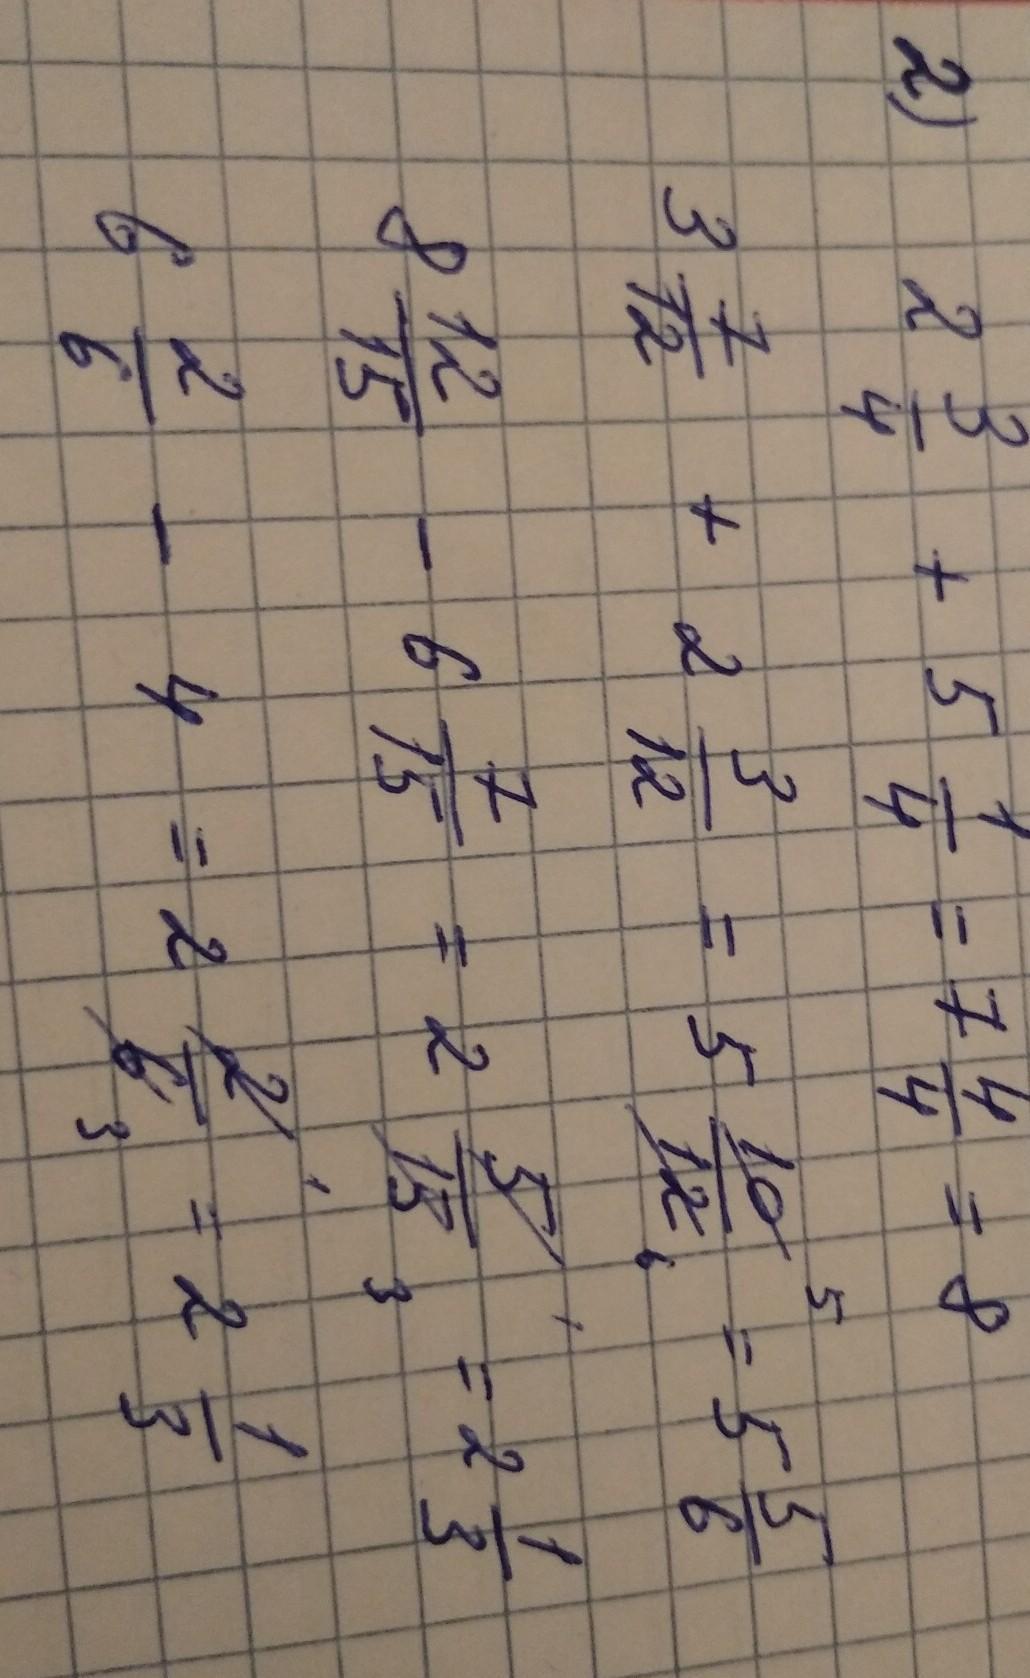 2) 2 3/4 + 5 1/4 = 7 4/4 = 8
3 7/12 + 2 3/12 = 5 10/12 5 6 = 5 5/6
8 12/15 - 6 7/15 = 2 5/15 1 3 = 2 1/3
6 2/6 - 4 = 2 2/6 1 3 = 2 1/3